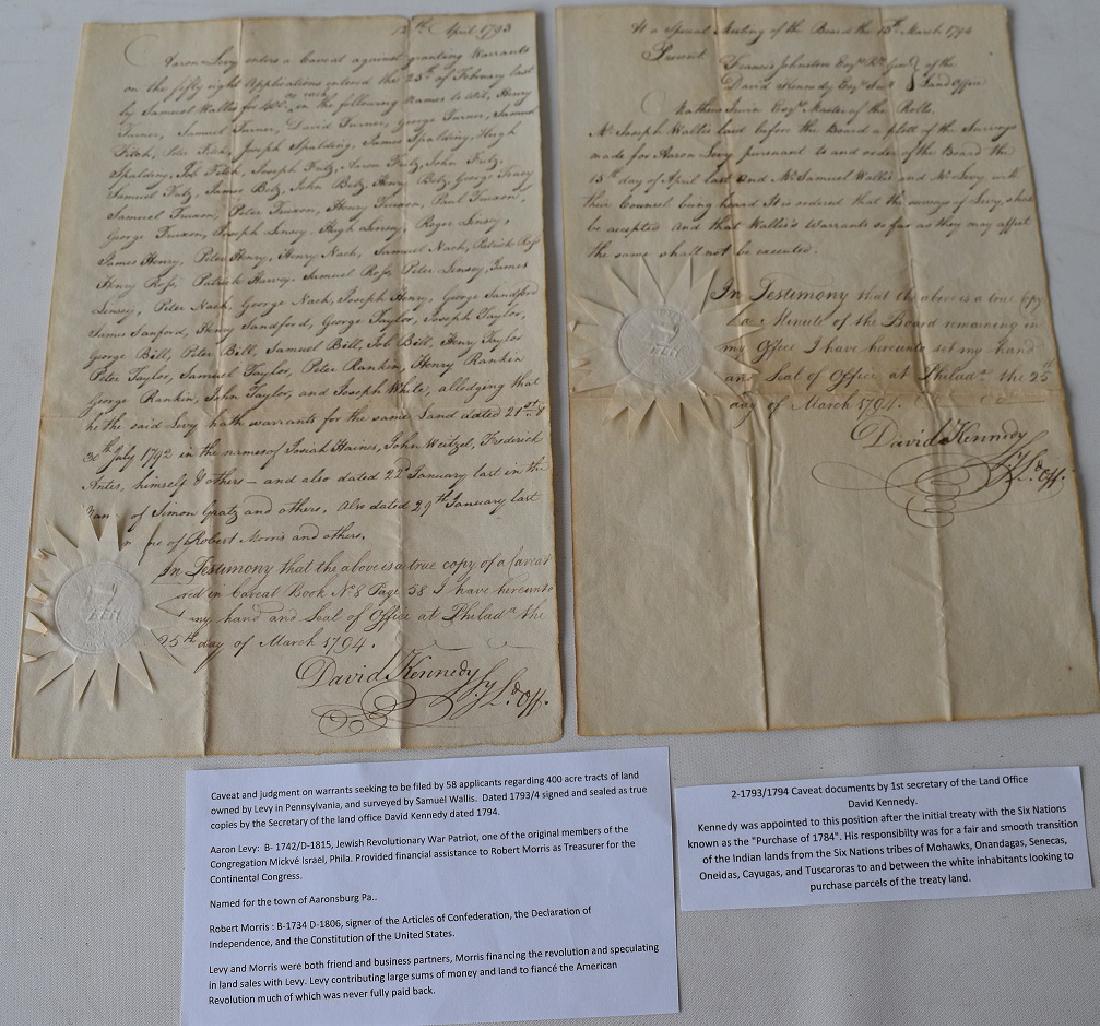 12th April 1793
Aaron Levy enters a Caveat against granting Warrants
on the fifty eight Applications entered the 25th of February last
by Samuel Wallis for 400 as each in the following names to wit, Henry
Turner, Samuel Turner, David Turner, George Turner, Samuel
Fitch, Peter Fitch, Joseph Spalding, James Spalding, Hugh
Spalding, Job Fitch, Joseph Futz, Aaron Futz, John Futz,
Samuel Futz, James Betz, John Betz, Henry Betz, George
Samuel Truxon, Peter Truxon, Henry Truxon, Paul Truxon,
George Truxon, Joseph Linsey, Hugh Linsey, Roger Linsey,
James Henry, Peter Henry, Henry Nach, Samuel Nach, Patrick Ross
Henry Ross, Patrick Harvey, Samuel Ross, Peter Linsey, James
Linsey, Peter Nach, George Nach, Joseph Henry, George Sandford
James Sanford, Henry Sandford, George Taylor, Joseph Taylor,
George Bill, Peter Bill, Samuel Bill, Job Bill, Henry Taylor
Peter Taylor, Samuel Taylor, Peter Rankin, Henry Rankin
George Rankin, John Taylor, and Joseph White, alledging that
he the said Levy hath warrants for the same Land dated 21st &
30th July 1792 in the names of Josiah Haines, John Weitzel, Frederick
Antes, himself & others – and also dated 22d January last in the
of Simon Gratz and others. Also dated 29th January last
of Robert Morris and others.
In Testimony that the above is a true copy of a Caveat
in Caveat Book No. 8 Page 58 I have hereunto
my hand and Seal of Office at Philada. the
25th day of March 1794.
David Kennedy Sy. Ld. Off.
At a Special Meeting of the Board the 15th March 1794
Present Francis Johnston Esqr. Rr. Genl. } of the
David Kennedy Esqr. Secy. } Land Office
Mathew Irwin Esqr. Master of the Rolls.
Mr. Joseph Wallis laid before the Board a plott of the Surveys
made for Aaron Levy pursuant to and order of the Board the
15th day of April last and Mr. Samuel Wallis and Mr. Levy with
their Councel being heard It is ordered that the surveys of Levy shall
be accepted and that Wallis's Warrants so far as they may affect
the same shall not be executed.
In Testimony that the above is a true Copy
of a Minute of the Board remaining in
my Office I have hereunto set my hand
and Seal of Office at Philada. the 25th
day of March 1794.
David Kennedy Sy. Ld. Off.
Caveat and judgment on warrants seeking to be filed by 58 applicants regarding 400 acre tracts of land
owned by Levy in Pennsylvania, and surveyed by Samuel Wallis. Dated 1793/4 signed and sealed as true
copies by the Secretary of the land office David Kennedy dated 1794.
Aaron Levy: B- 1742/D-1815, Jewish Revolutionary War Patriot, one of the original members of the
Congregation Mickvé Israel, Phila. Provided financial assistance to Robert Morris as Treasurer for the
Continental Congress.
Named for the town of Aaronsburg Pa..
Robert Morris : B-1734 D-1806, signer of the Articles of Confederation, the Declaration of
Independence, and the Constitution of the United States.
Levy and Morris were both friend and business partners, Morris financing the revolution and speculating
in land sales with Levy. Levy contributing large sums of money and land to fiancé the American
Revolution much of which was never fully paid back.
2-1793/1794 Caveat documents by 1st secretary of the Land Office
David Kennedy.
Kennedy was appointed to this position after the initial treaty with the Six Nations
known as the "Purchase of 1784". His responsibilty was for a fair and smooth transition
of the Indian lands from the Six Nations tribes of Mohawks, Onandagas, Senecas,
Oneidas, Cayugas, and Tuscaroras to and between the white inhabitants looking to
purchase parcels of the treaty land.